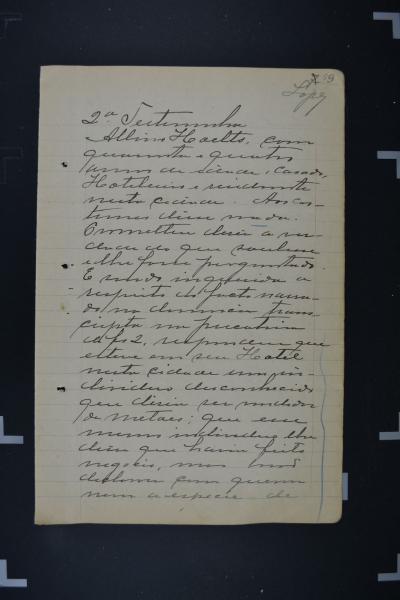 19
Lopes
2ª Testemunha
Albino Hoelts, com
quarenta e quatro
annos de idade, casado,
Hoteleiro e residente
nesta cidade. Aos cos-
tumes disse nada.
Prometteu dizer a ver-
dade do que soubesse
e lhe fosse perguntado.
E sendo inquirido a
respeito do facto narra-
do na denuncia trans-
cripta na precatoria
a fs 2, respondeu que
esteve em seu Hotel
nesta cidade um in-
dividuo desconhecido
que dizia ser vendedor
de metaes; que esse
mesmo individuo lhe
disse que havia feito
negocio, mas não
declarou com quem
nem a especie de